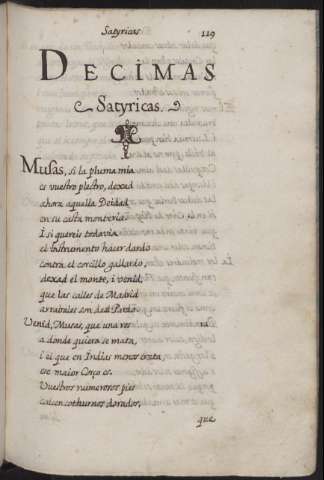 Satyricas. 119
DECIMAS
Satyricas.
Musas, si la pluma mia
es vuestro plectro, dexad
ahora aquella Deidad
en su casta monteria.
I si quereis todavia
el instrumento hacer dardo
contra el corcillo gallardo,
dexad el monte, i venid,
que las calles de Madrid
arrabales son del Pardo.
Venid, Musas, que una res
a donde quiera se mata,
i el que en Indias menos trata
ese maior Corço es.
Vuestros numerosos pies
calcen cothurnos dorados,
que